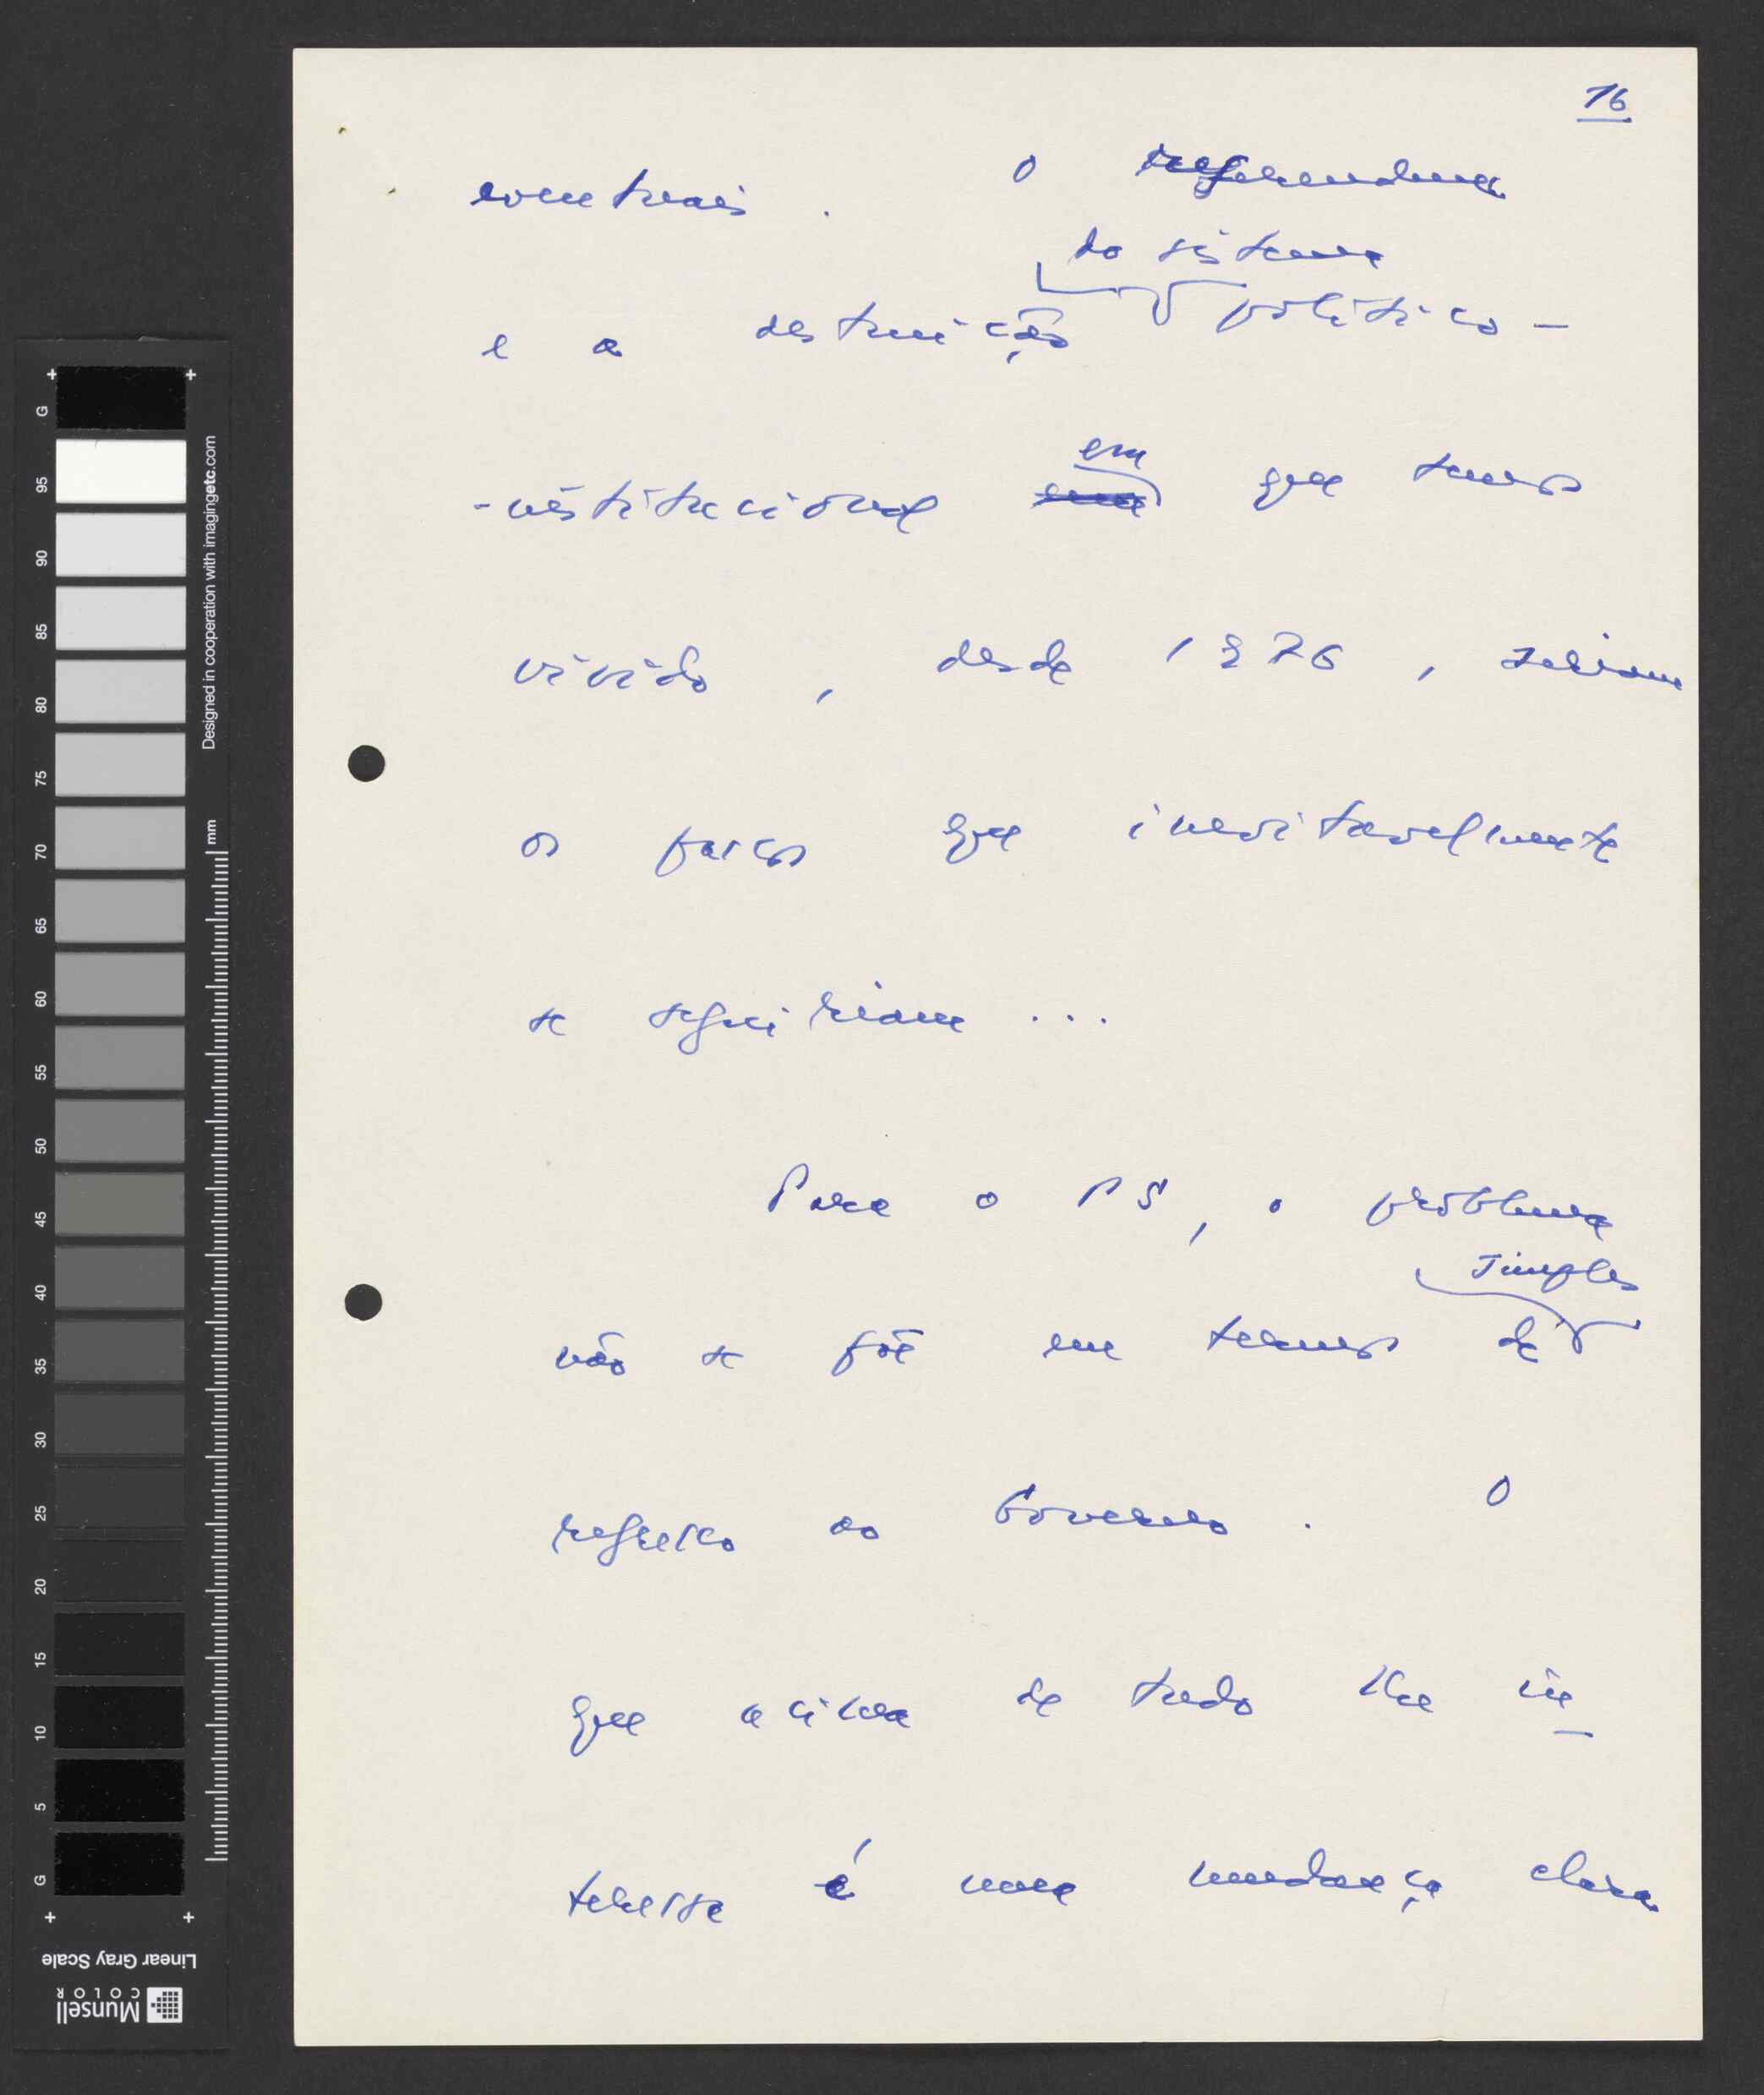 16
eventuais. O referendum
do sistema
e a destruição político-
em
-institucional que temos
vivido, desde 1976, seriam
os passos que inevitavelmente
se seguiriam ...
Para o PS, o problema
simples
não se põe em termos de
regresso ao Governo. O
que acima de tudo lhe in
teressa é uma mudança clara
G
95
90
85
80
75
70
65
60
55
50
45
40
35
30
25
20
15
10
5
G
mm
Designed in cooperation with imagingetc.com
Linear Gray Scale
Munsell
COLOR